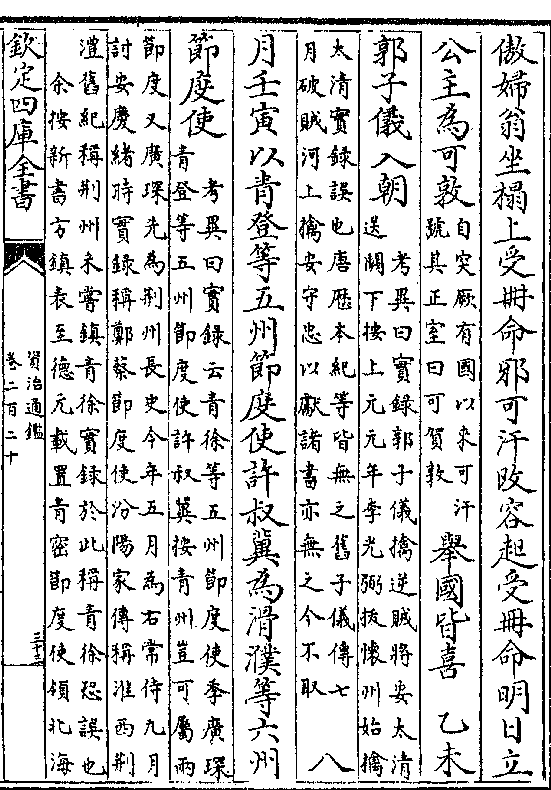 傲婦翁坐榻上受冊命邪可汗改容起受冊命明日立
公主為可敦
自突厥有國以来可汗
號其正室曰可賀敦
舉國皆喜 乙未
郭子儀入朝
考異曰實錄郭子儀擒逆賊將安太清
送闕下按上元元年李光弼拔懷州始擒
太清實錄誤也唐歴本紀等皆無之舊子儀傳七
月破賊河上擒安守忠以獻諸書亦無之今不取
八
月壬寅以青登等五州節度使許叔冀為滑濮等六州
節度使
考異曰實錄云青徐等五州節度使季廣琛
青登等五州節度使許叔冀按青州豈可屬兩
節度又廣琛先為荆州長史今年五月為右常侍九月
討安慶緒時實錄稱鄭蔡節度使汾陽家傳稱淮西荆
澧舊紀稱荆州未嘗鎮青徐實錄於此稱青徐恐誤也
余按新書方鎮表至德元載置青密節度使領北海
欽定四庫全書
資治通鑑
卷二百二十
三十三